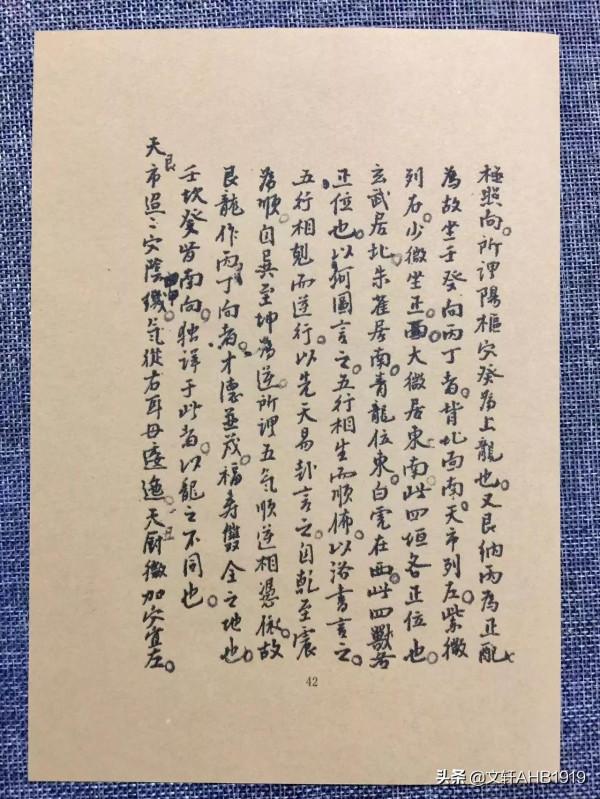 極照向。所謂陽樞穴癸為上龍也。又艮納丙為正配
為故坐壬癸向丙丁者。皆北面南。天市列左。紫微
列右。少微坐正西。大微居東南。此四垣各正位也。
玄武居北。朱雀居南。青龍位東。白虎在西。此四獸各
正位也。以河圖言之。五行相生而順佈。以洛書言之。
五行相剋而逆行。以先天易卦言之。自乾至震
為順。自巽至坤為逆。所謂五氣順逆相憑依。故
艮龍作丙丁向者。才德並茂。福壽雙全之地也。
壬坎癸皆南向。独詳于此者。以龍之不同也。
天市照穴陰機。氣從右耳毋逶迤。天厨微加穴宜左。
艮
丑
42
头条 @文轩AHB1919